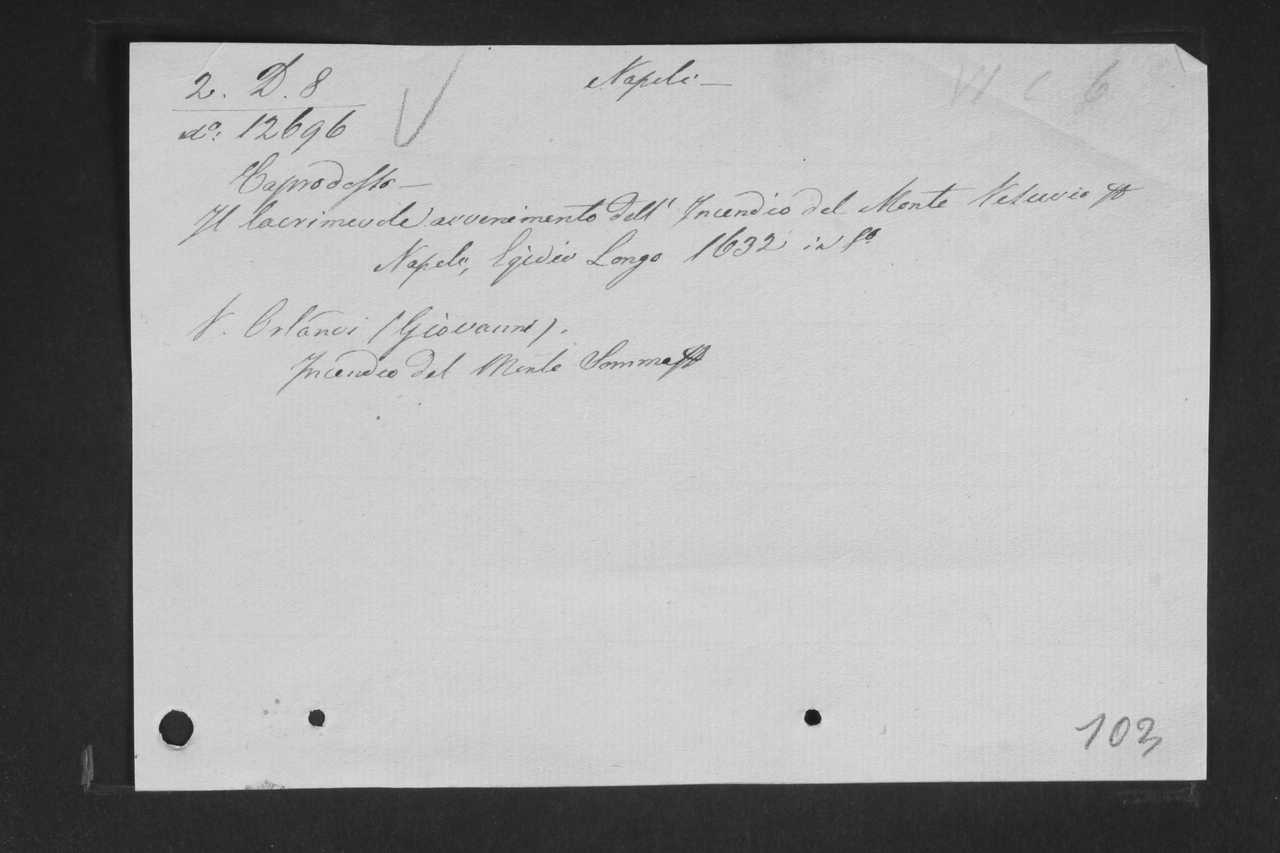 2. D. 8
Napoli —
VI C 6
No: 12696
Il lacrimevole avvenimento dell' Incendio del Monte Vesuvio
Napoli, Egidio Longo 1632 in f°
V. Orlandi (Giovanni).
Incendio del Monte Somma
103